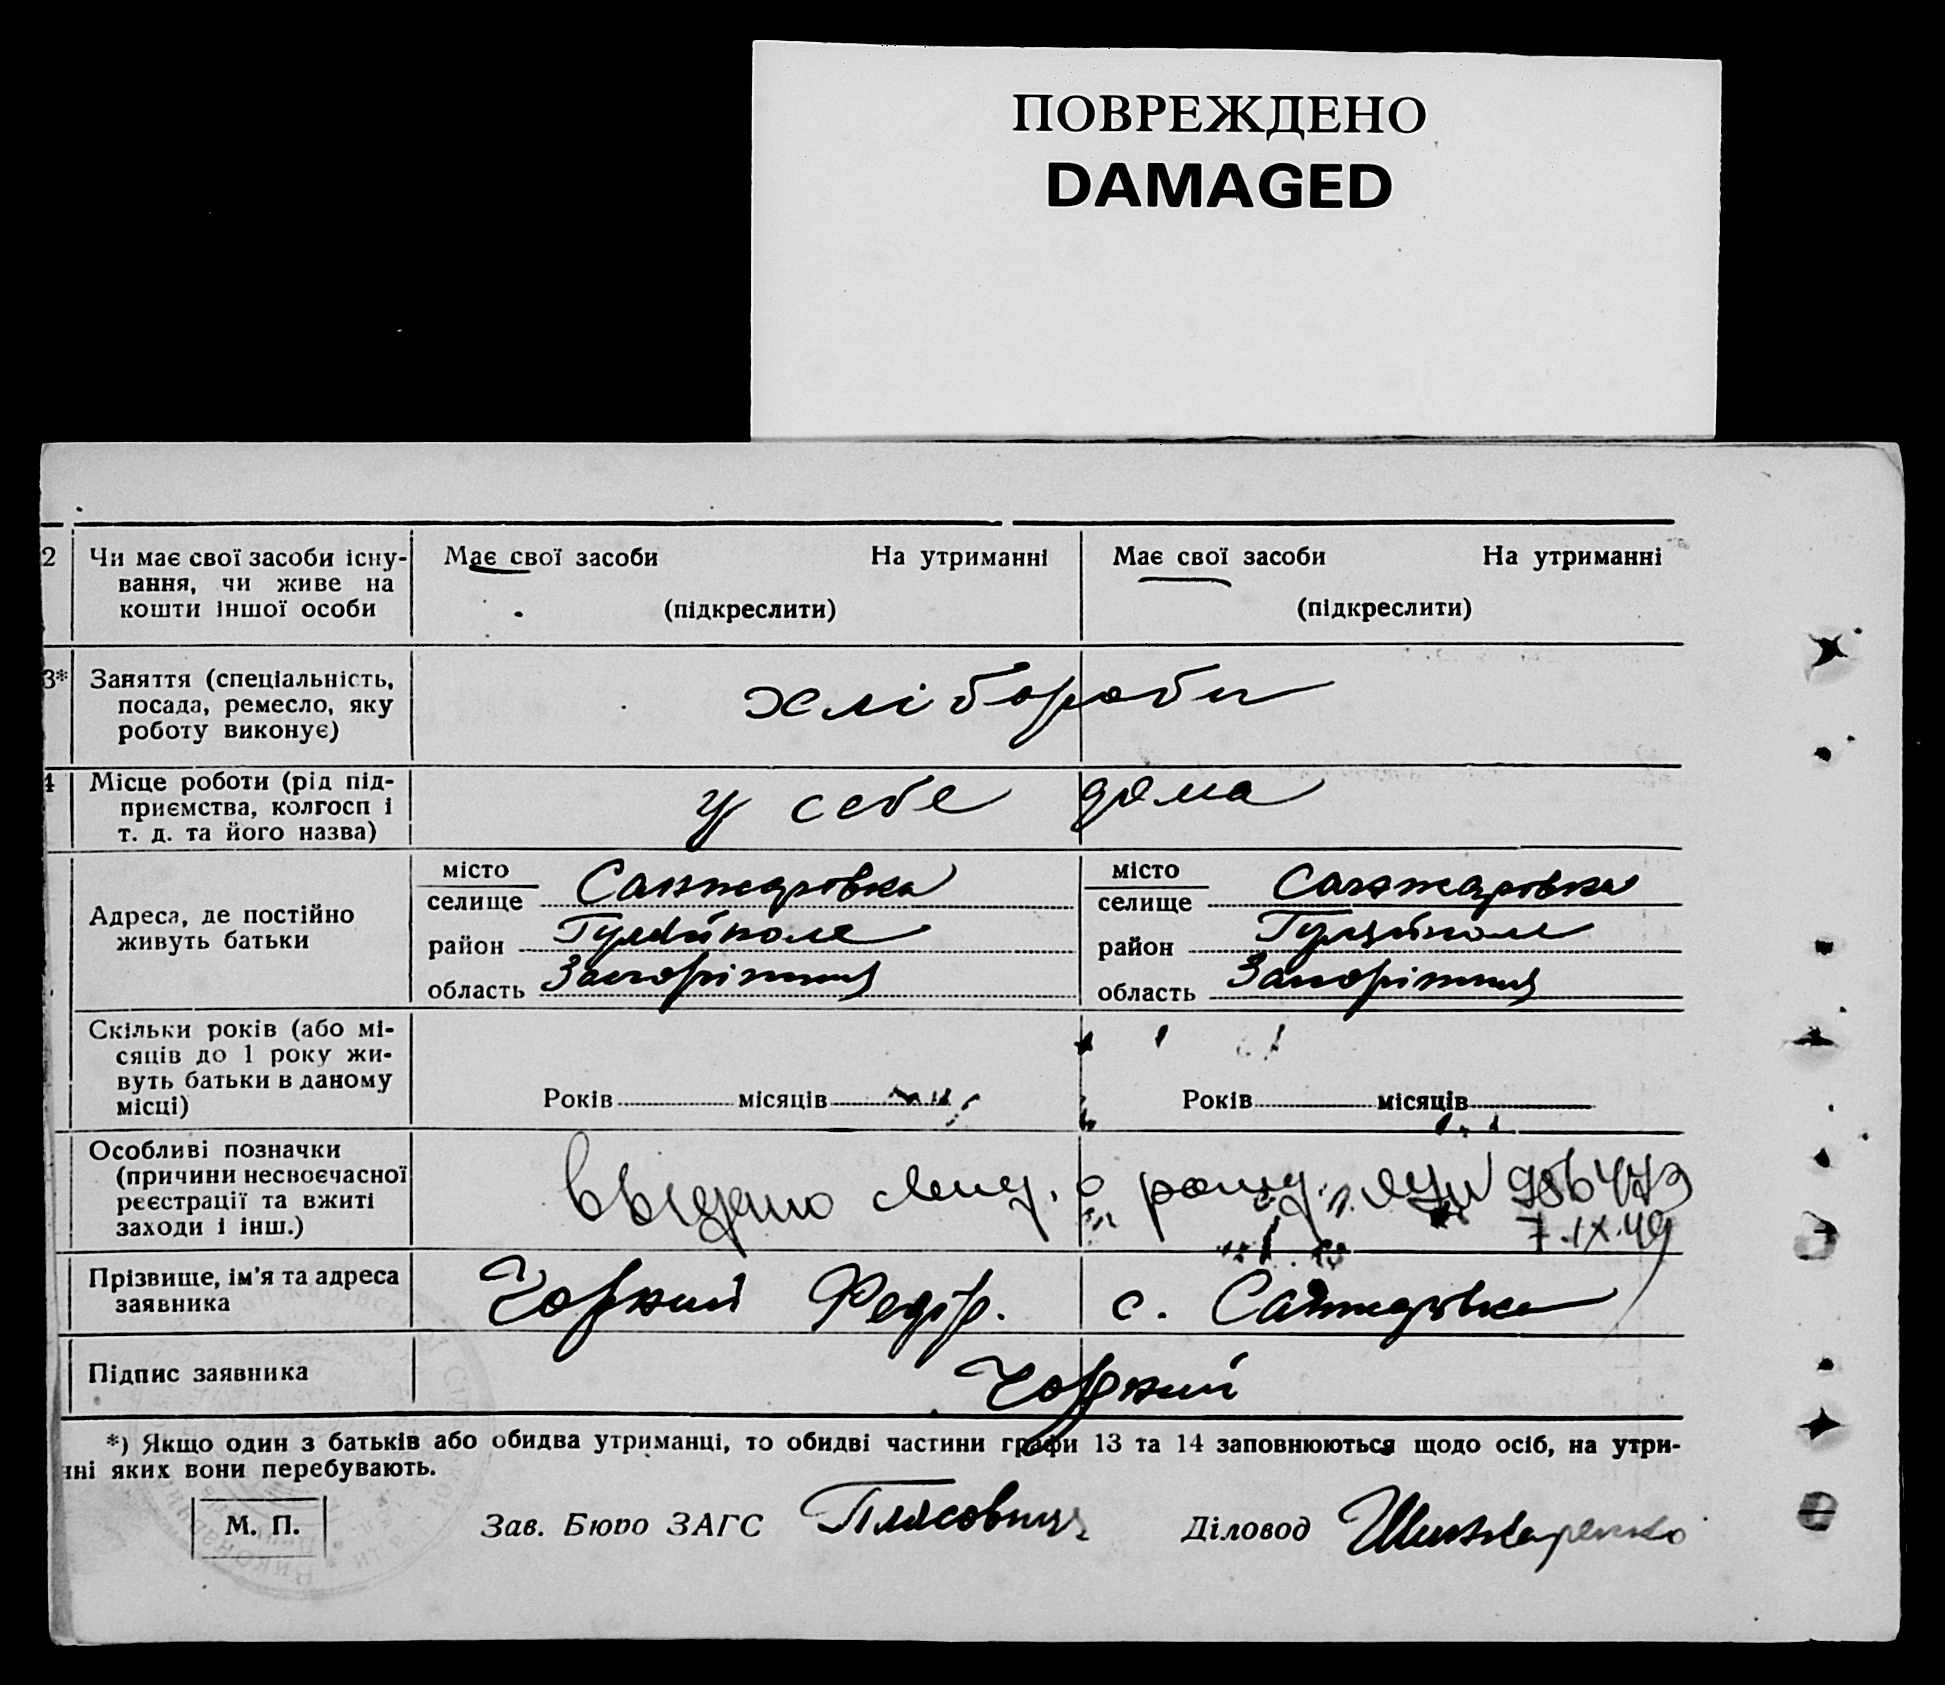 ПОВРЕЖДЕНО
DAMAGED
2 Чи має свої засоби існу-
вання, чи живе на
кошти іншої особи
Має свої засоби На утриманні
(підкреслити)
Має свої засоби На утриманні
(підкреслити)
3* Заняття (спеціальність,
посада, ремесло, яку
роботу виконує)
хлібороби
4 Місце роботи (рід під-
приємства, колгосп і
т. д. та його назва)
у себе дома
Адреса, де постійно
живуть батьки
місто
селище Санжаровка
район Гуляйполе
область Запоріжжя
місто
селище Санжаровка
район Гуляйполе
область Запоріжжя
Скільки років (або мі-
сяців до 1 року жи-
вуть батьки в даному
місці)
Років місяців
Років місяців
Особливі позначки
(причини несвоєчасної
реєстрації та вжиті
заходи і інш.)
выдано о рожд. 986479
7.IX.49
Прізвище, ім'я та адреса
заявника
Чорний Федір. с. Санжаровка
Підпис заявника
Чорний
*) Якщо один з батьків або обидва утриманці, то обидві частини графи 13 та 14 заповнюються щодо осіб, на утри-
нні яких вони перебувають.
М. П.
Зав. Бюро ЗАГС
Діловод Шинкаренко